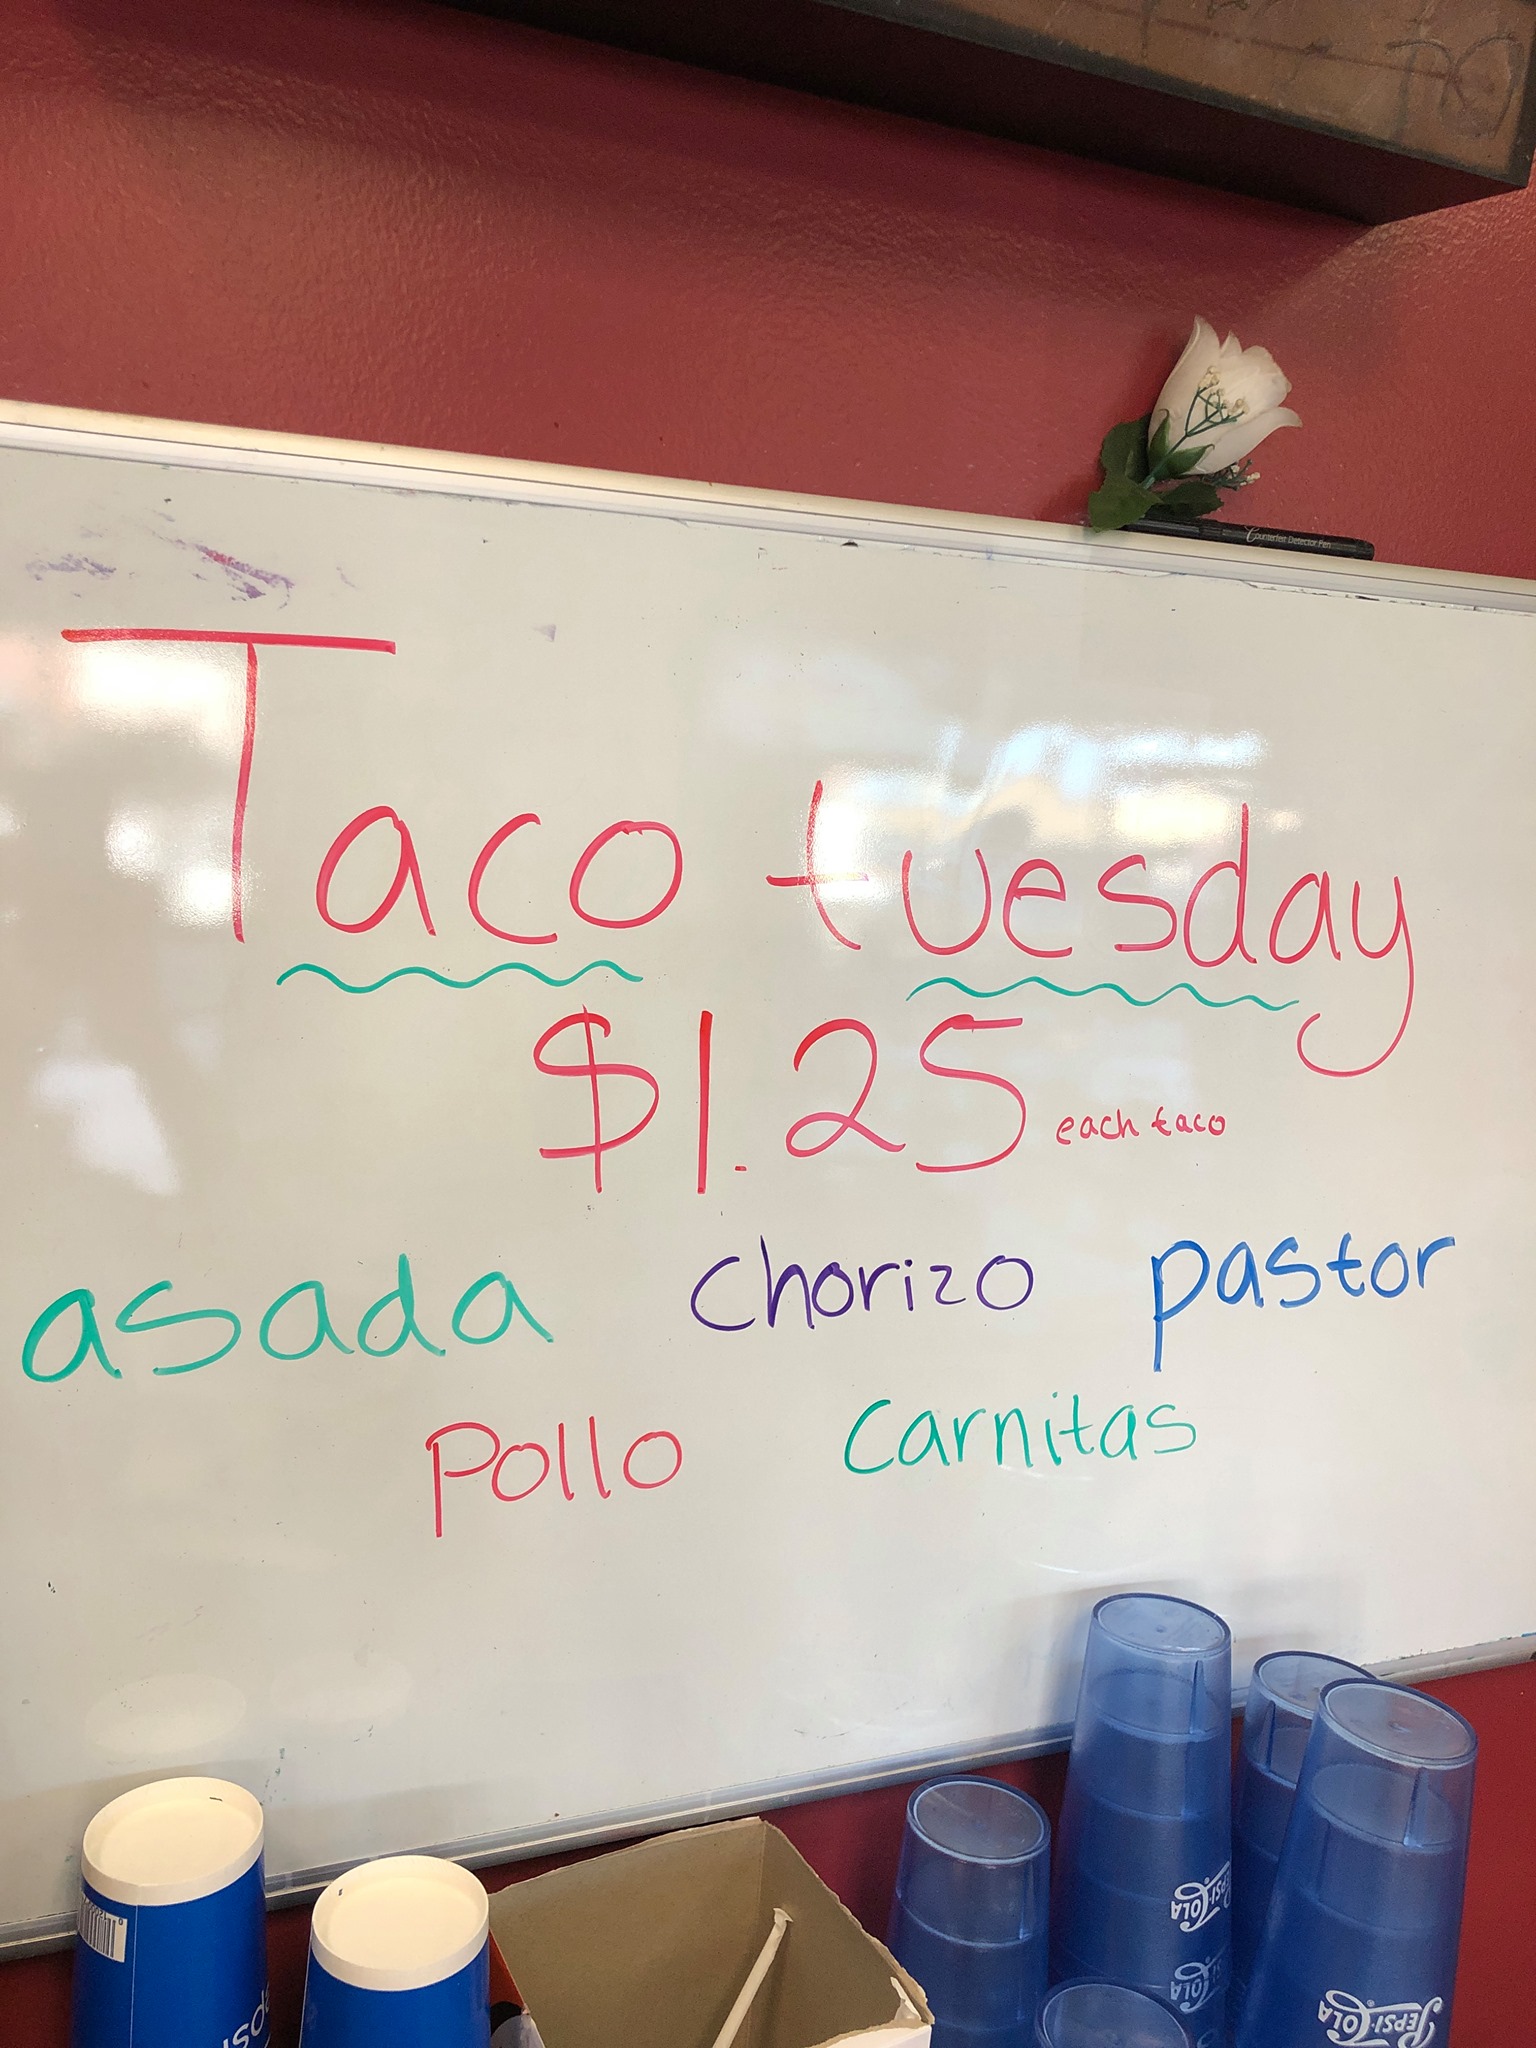 Counterfeit Detector Pen
Taco tuesday
$1.25 each taco
asada chorizo pastor
Pollo carnitas
PEPSI-COLA
PEPSI-COLA
PEPSI-COLA